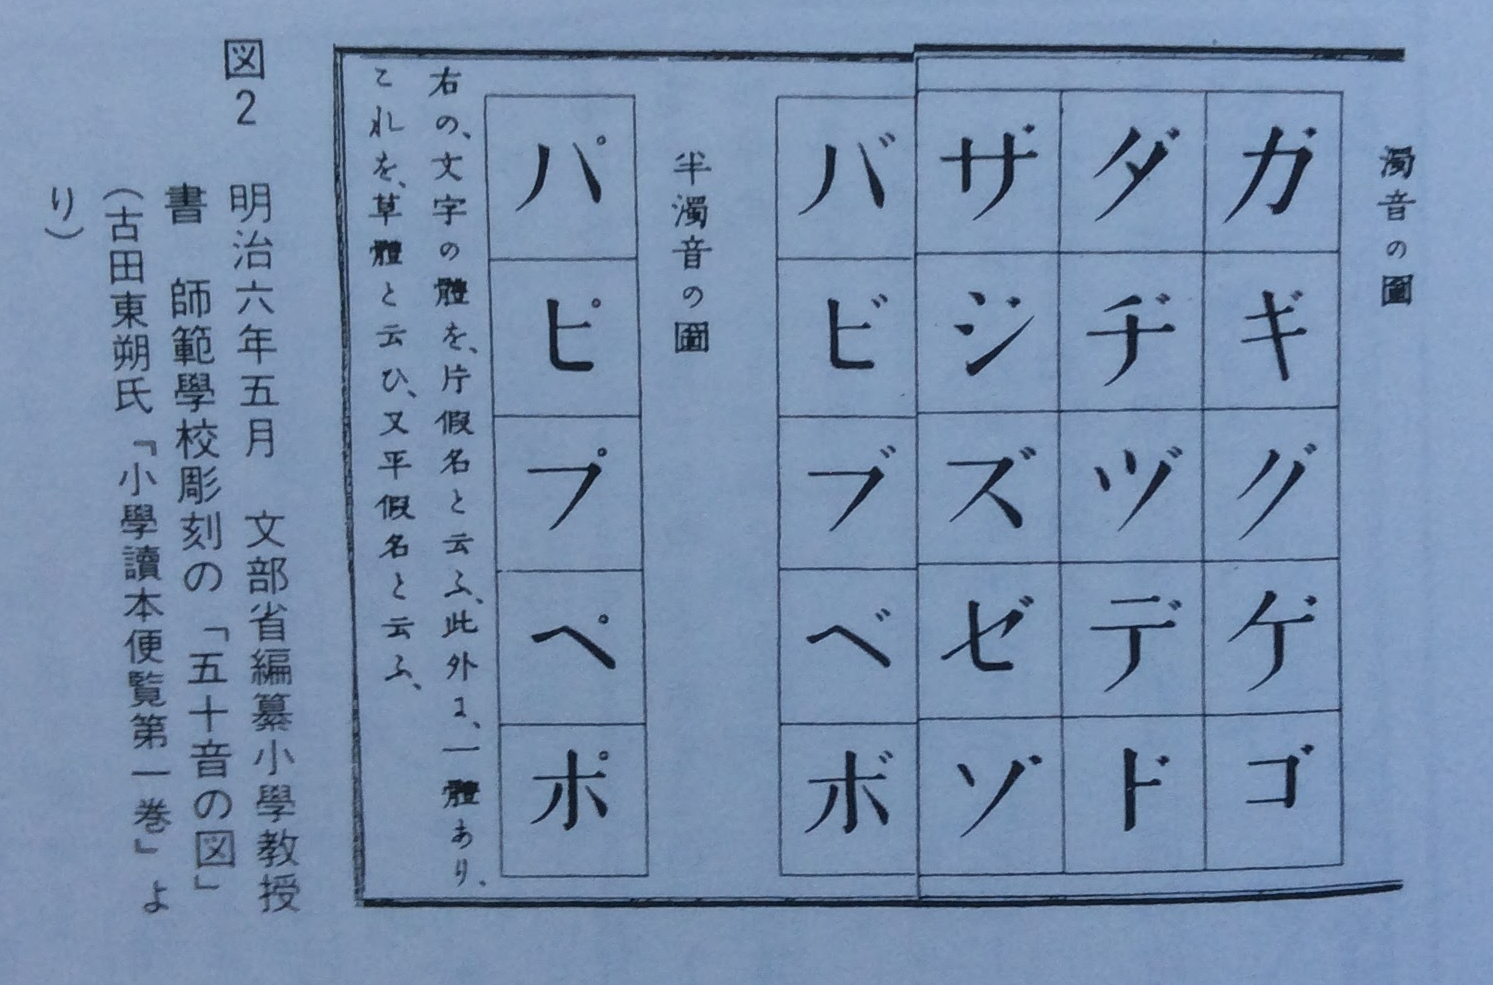 濁音の圖
ガギグゲゴ
ダヂヅデド
ザジズゼゾ
バビブベボ
半濁音の圖
パピプペポ
右の、文字の體を、片假名と云ふ、此外に、一體あり、
これを、草體と云ひ、又平假名と云ふ、
図2 明治六年五月 文部省編纂小學教授
書 師範學校彫刻の「五十音の図」
(古田東朔氏『小學讀本便覧第一巻』よ
り)